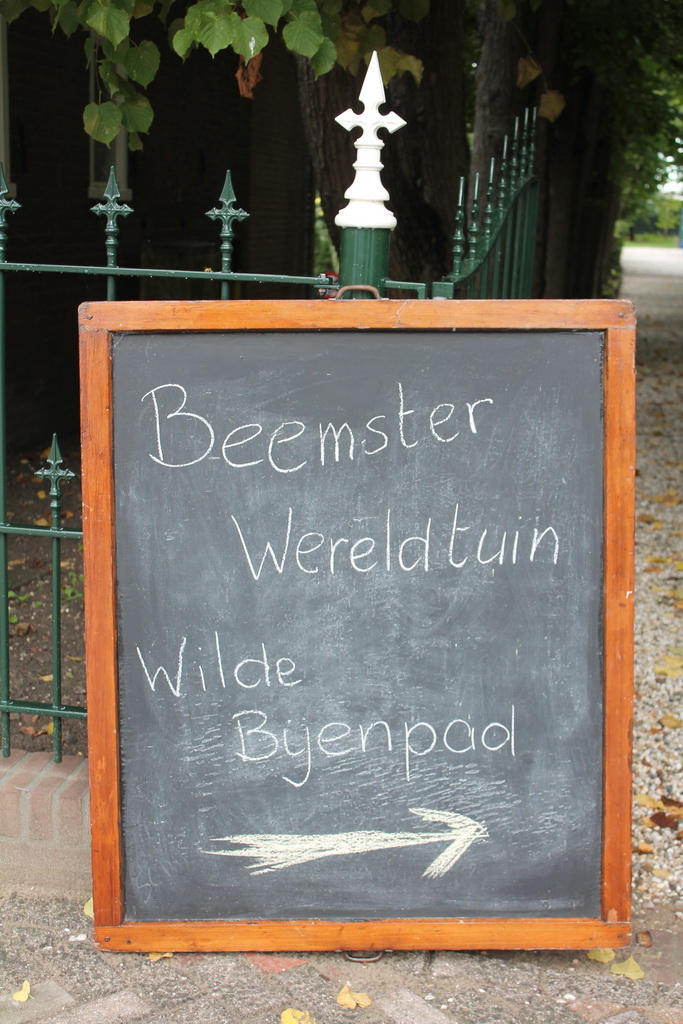 Beemster
Wereldtuin
Wilde
Bijenpad